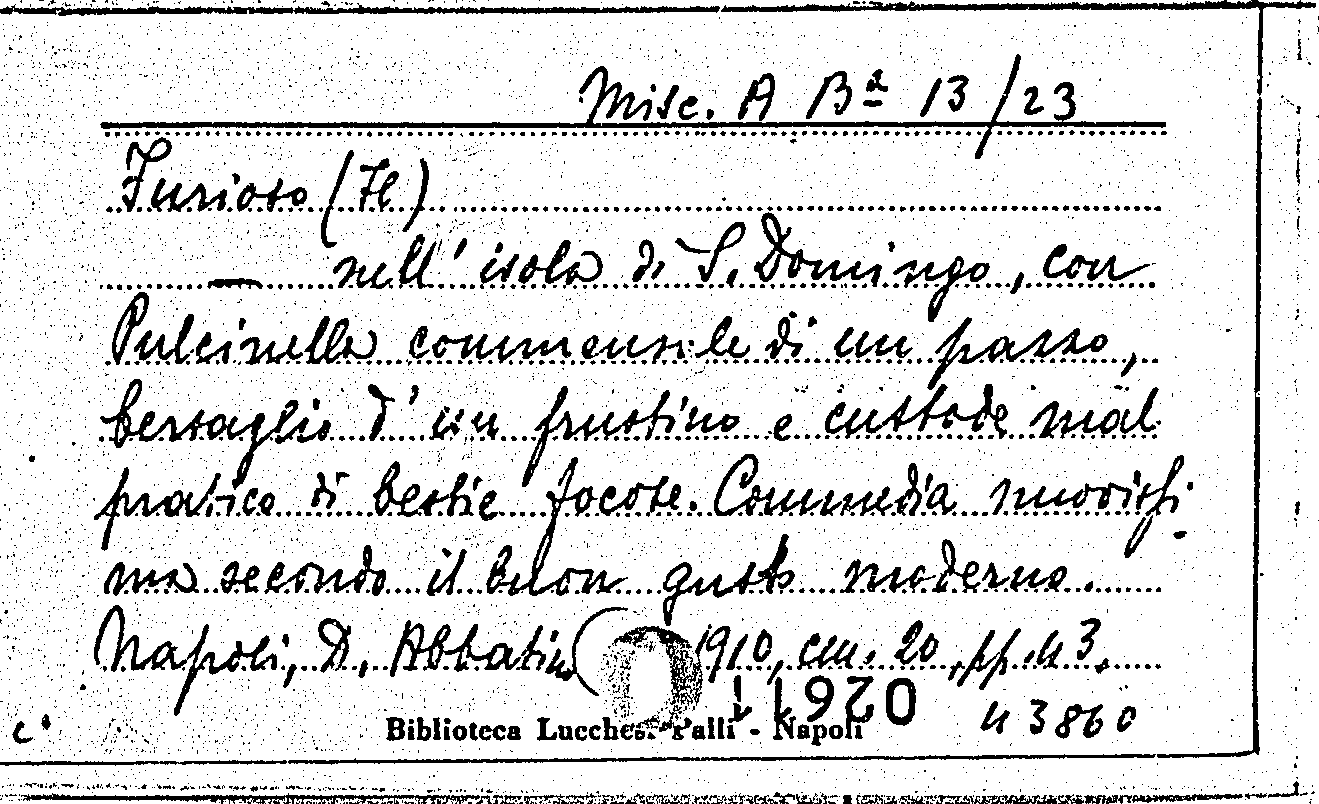 Misc. A Bª 13/23
Furioso (Il)
— nell' isola di S. Domingo, con
Pulcinella commensale di un pazzo,
bersaglio d' un frustino e custode mal
pratico di bestie focose. Commedia nuovissi-
ma secondo il buon gusto moderno.
Napoli, D. Abbatino 1910, cm. 20, pp. 43.
02611
43860
Biblioteca Lucchesi-Palli - Napoli